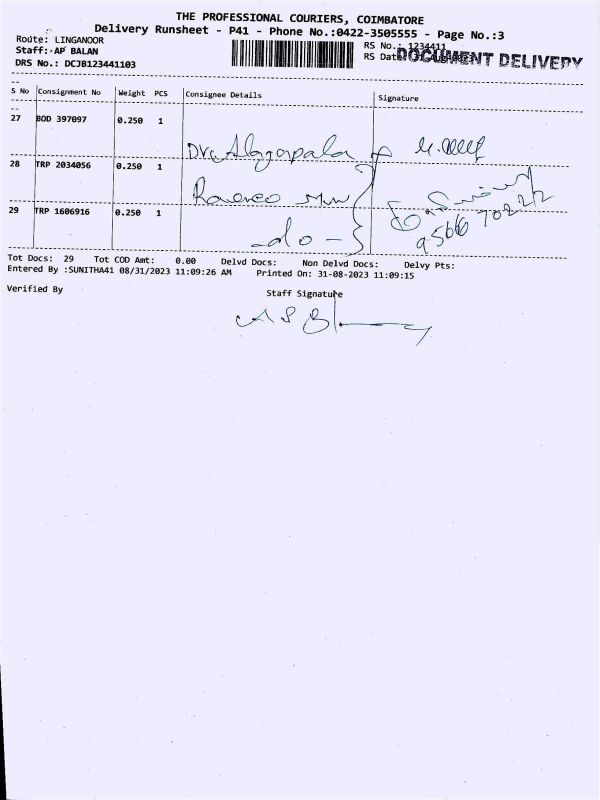 THE PROFESSIONAL COURIERS, COIMBATORE
Delivery Runsheet - P41 - Phone No.:0422-3505555 - Page No.:3
Route: LINGANOOR
RS No.: 1234411
Staff: AP BALAN
RS Dat
DOCUMENT DELIVERY
DRS No.: DCJB123441103
S No Consignment No Weight PCS Consignee Details Signature
27 BOD 397097 0.250 1
28 TRP 2034056 0.250 1
29 TRP 1606916 0.250 1
-do-
9566 70222
Tot Docs: 29 Tot COD Amt: 0.00 Delvd Docs: Non Delvd Docs: Delvy Pts:
Entered By :SUNITHA41 08/31/2023 11:09:26 AM Printed On: 31-08-2023 11:09:15
Verified By Staff Signature